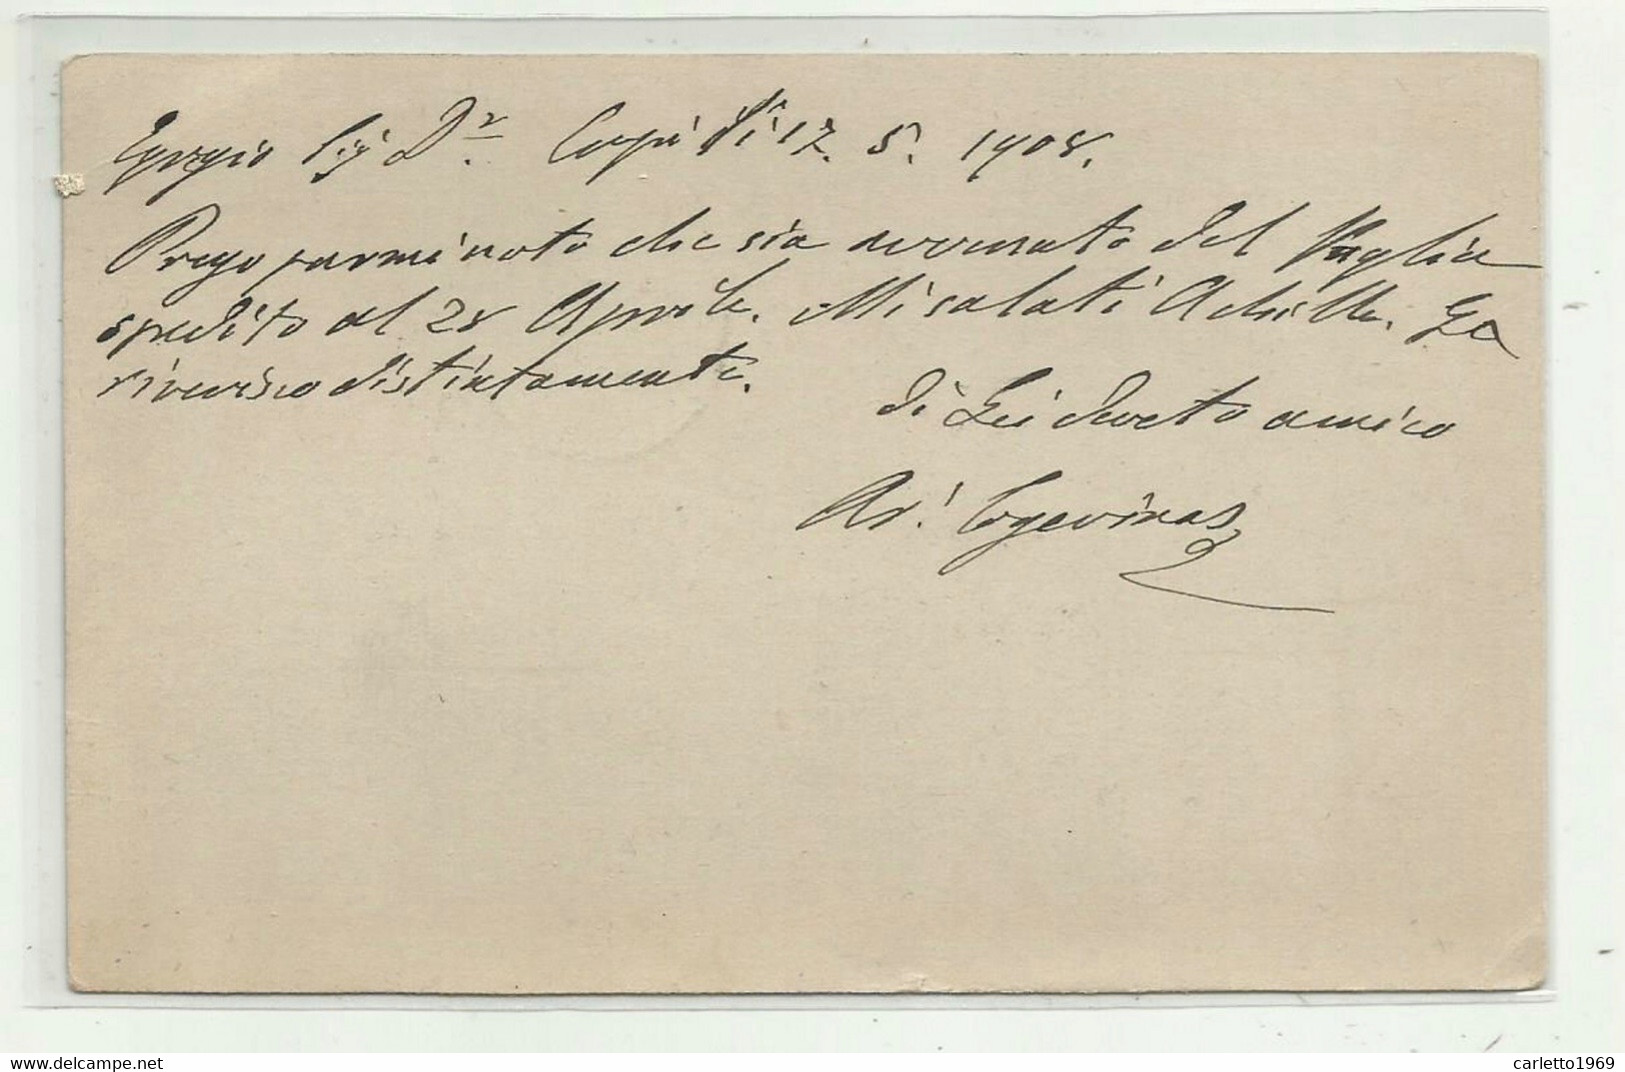 Egregio Sig. D.r Carpi li 17. 5. 1908.
Prego farmi noto che sia avvenuto del Vaglia
spedito al 28 Aprile. Mi saluti Achille. La
riverisco distintamente.
di Lei devoto amico
Ar.
carletto1969
delcampe.net